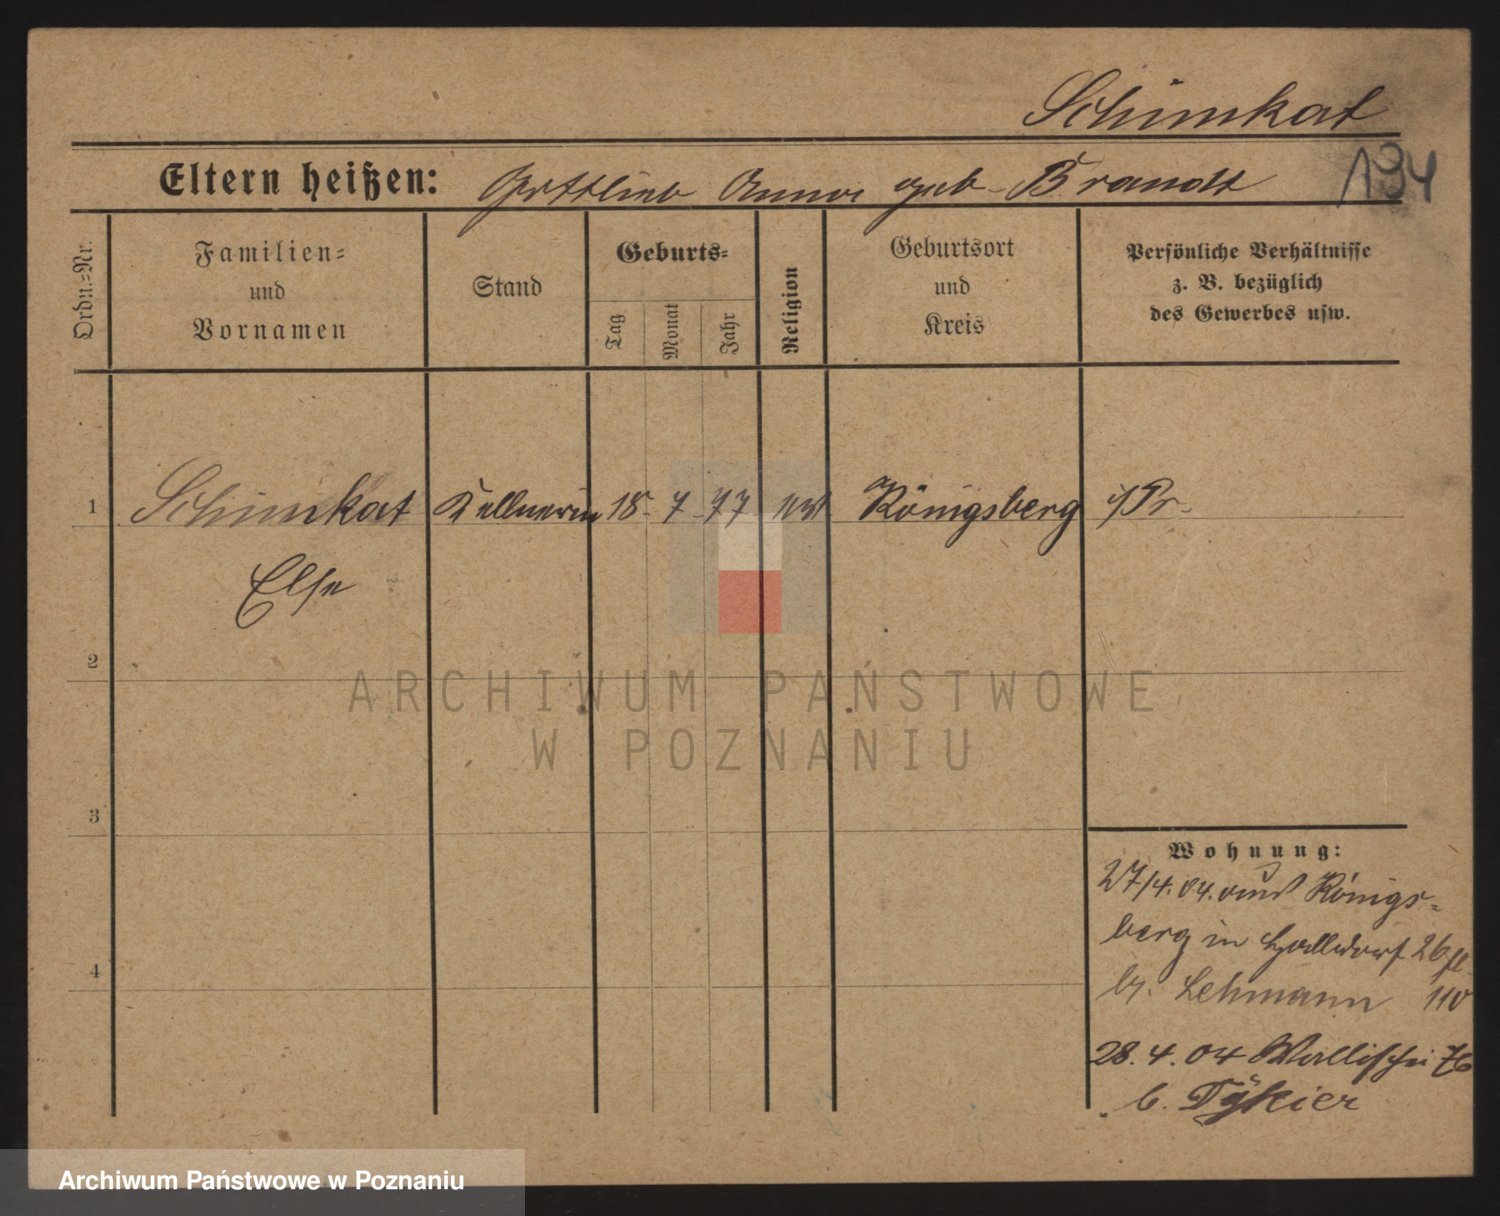 Schimkat
134
Eltern heißen: Gottlieb Anna geb. Brandt
Ordn.=Nr.
Familien=
und
Vornamen
Stand
Geburts=
Tag
Monat
Jahr
Religion
Geburtsort
und
Kreis
Persönliche Verhältnisse
z. B. bezüglich
des Gewerbes usw.
1 Schimkat Kellnerin 18. 7 77 Königsberg i/Pr.
Else
2
3
4
Wohnung:
27/4.04. aus Königs=
berg in Halldorf 26
b. Lehmann
28.4.04 Wallischei 76
b.
ARCHIWUM PAŃSTWOWE
W POZNANIU
Archiwum Państwowe w Poznaniu